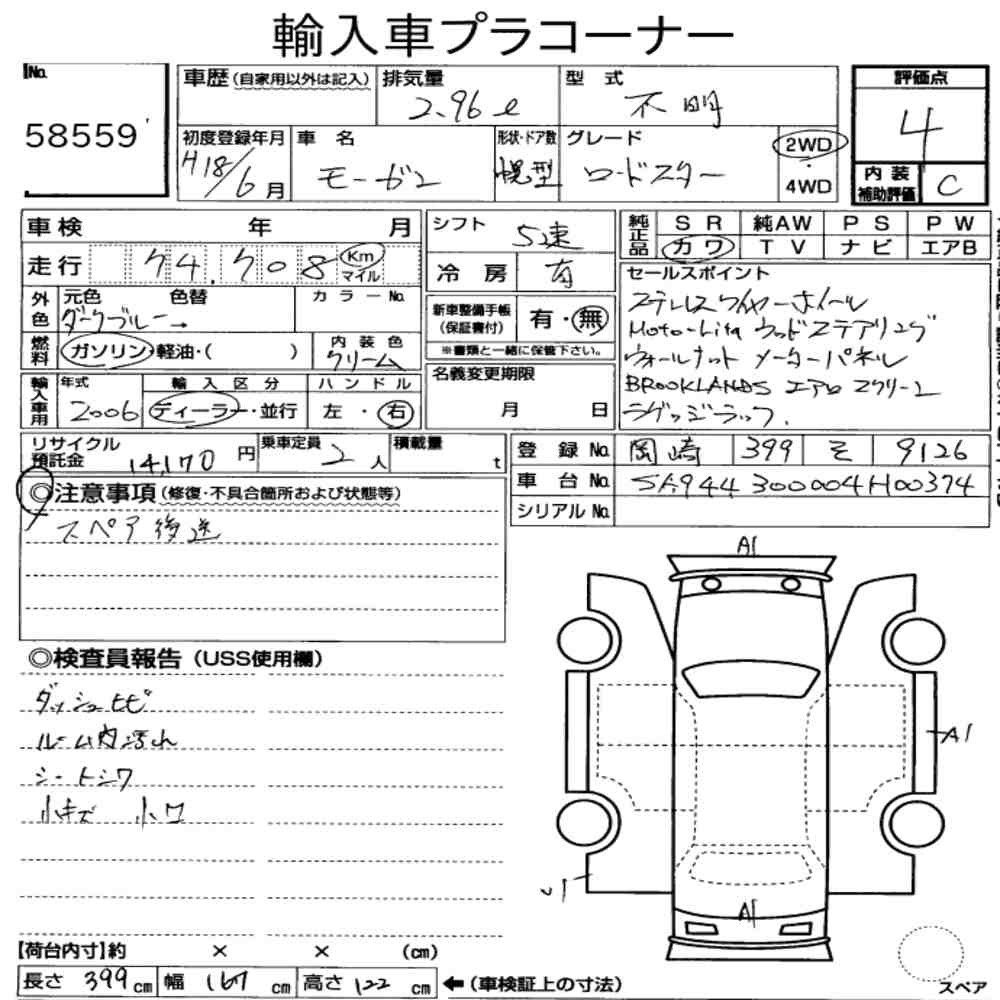 輸入車プラコーナー
No.
58559
車歴(自家用以外は記入)
排気量
2.96 ℓ
型 式
不明
評価点
4
初度登録年月
H18/6月
車 名
モーガン
形状・ドア数
幌型
グレード
ロードスター
2WD
・
4WD
内 装
補助評価
C
車検 年 月
走行 74,708 Km マイル
外色
元色 色替
ダークブルー→
カラーNo.
燃料
ガソリン・軽油・( )
内 装 色
クリーム
輸入車用
年式
2006
輸 入 区 分
ディーラー・並行
ハ ン ド ル
左 ・ 右
シフト
5速
冷 房
有
新車整備手帳
(保証書付)
有・無
※書類と一緒に保管下さい。
名義変更期限
月 日
純正品
S R 純AW P S P W
カワ T V ナ ビ エアB
セールスポイント
ステンレスワイヤーホイール
Moto-Lita ウッドステアリング
ウォールナット メーターパネル
BROOKLANDS エアロスクリーン
ラゲッジラック.
リサイクル
預託金
14170 円
乗車定員
2 人
積載量
t
登 録 No. 岡崎 399 そ 9126
車 台 No. SA944300004H00374
シリアル No.
◎注意事項(修復・不具合箇所および状態等)
スペア後送
◎検査員報告(USS使用欄)
ダッシュヒビ
ルーム内汚れ
シートシワ
小キズ 小ワ
A1
A1
A1
【荷台内寸】約 × × (cm)
長さ 399 cm 幅 167 cm 高さ 122 cm ←(車検証上の寸法)
スペア